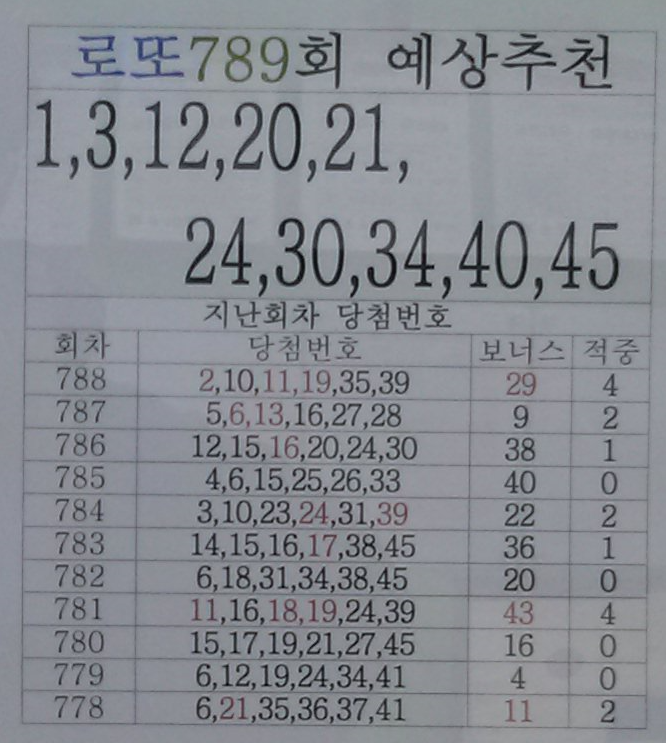 로또789회 예상추천
1,3,12,20,21,
24,30,34,40,45
지난회차 당첨번호
회차 당첨번호 보너스 적중
788 2,10,11,19,35,39 29 4
787 5,6,13,16,27,28 9 2
786 12,15,16,20,24,30 38 1
785 4,6,15,25,26,33 40 0
784 3,10,23,24,31,39 22 2
783 14,15,16,17,38,45 36 1
782 6,18,31,34,38,45 20 0
781 11,16,18,19,24,39 43 4
780 15,17,19,21,27,45 16 0
779 6,12,19,24,34,41 4 0
778 6,21,35,36,37,41 11 2